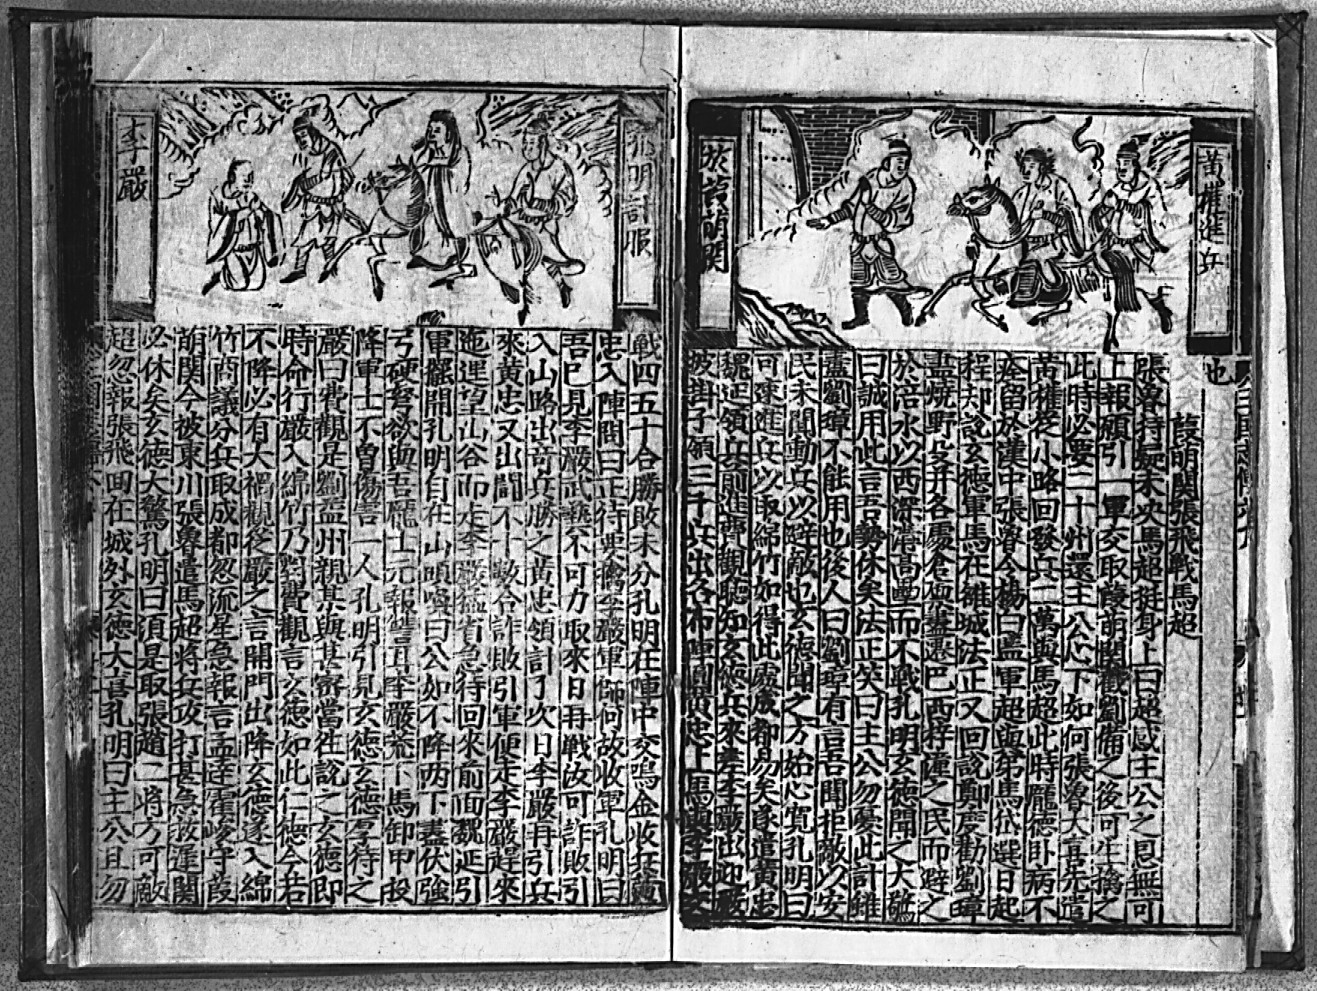 黃權進兵
於葭萌關
也
葭萌關張飛戰馬超
張魯持疑未央馬超挺身上曰超感主公之恩無可
上報願引一軍交取葭萌關戳劉備之後可生擒之
此時必要二十州還主公心下如何張魯大喜先遣
黃權從小路回發兵二萬與馬超此時龐德卧病不
痊留於漢中張魯令楊曰監軍超與第馬岱選日起
程却說玄德軍馬在雒城法正又回說鄭度勸劉璋
盡燒野谷并各處倉廪盡遷巴西梓潼之民而避之
於涪水以西深溝高壘而不戰孔明玄德聞之大驚
曰誠用此言吾勢休矣法正笑曰主公勿憂此計雖
盡劉璋不能用也後人曰劉璋有言吾聞拒敵以安
民未聞動兵以避敵也玄德聞之方始心寬孔明曰
可速進兵以取綿竹如得此處成都易勿矣遂遣黃忠
魏延領兵前進費觀聽知玄德兵來差李嚴出迎嚴
披掛了領三千兵出各布陣圓黃忠上馬與李嚴交
孔明計服
李嚴
戰四五十合勝敗未分孔明在陣中交鳴金收兵黃
忠入陣問曰正待要擒李嚴軍師何故收軍孔明曰
吾已見李嚴武藝不可力取來日再戰汝可詐敗引
入山峪出奇兵勝之黃忠領計了次日李嚴再引兵
來黃忠又出鬪不十數合詐敗引軍便走李嚴趕來
迤逞望山谷而走李嚴猛省急待回來前面魏延引
軍擺開孔明自在山頭喚曰公如不降两下盡伏強
弓硬弩欲與吾龐士元報讐耳李嚴荒下馬卸甲投
降軍士不曽傷害一人孔明引見玄德玄德厚待之
嚴曰費觀是劉益州親某與甚密當徃說之玄德即
時命行嚴入綿竹乃對費觀言玄德如此仁德今若
不降必有大禍觀從嚴之言開門出降玄德遂入綿
竹商議分兵取成都忽流星急報言孟達霍峻守葭
萌關今被東川張魯遣馬超將兵攻打甚急救遲關
必休矣玄德大驚孔明曰須是取張趙二將方可敵
超忽報張飛回在城外玄德大喜孔明曰主公且勿